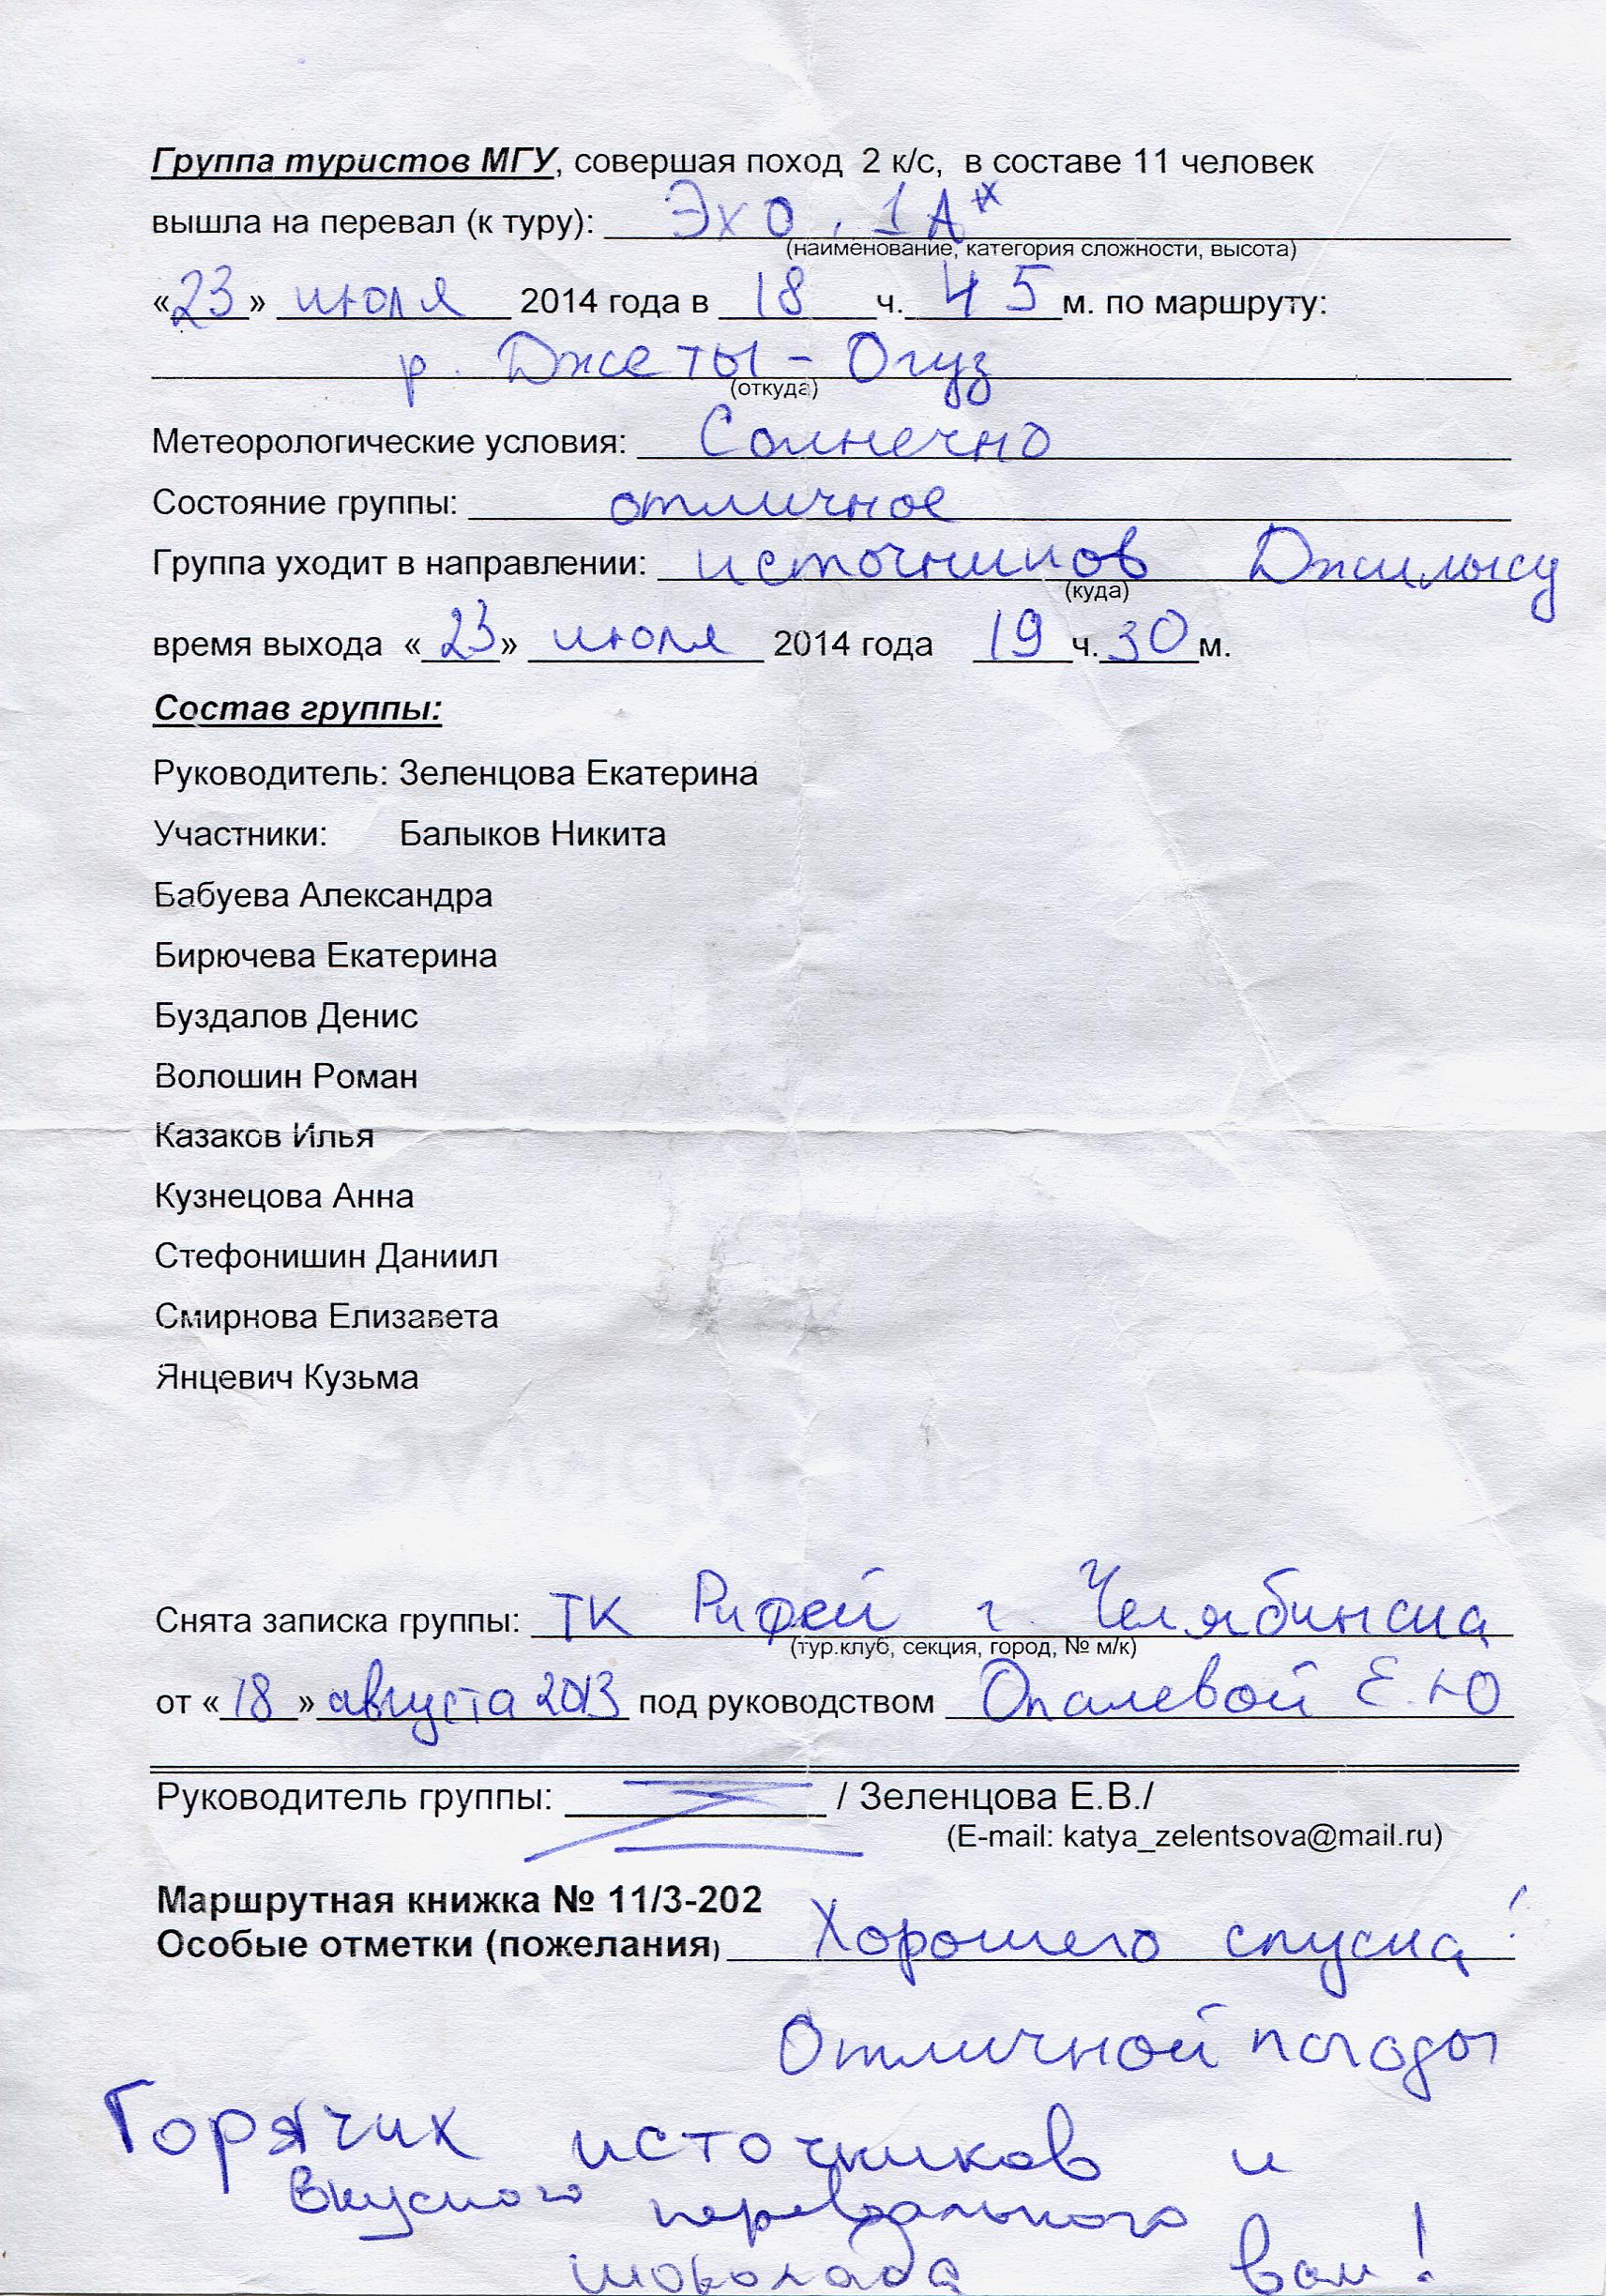 Группа туристов МГУ, совершая поход 2 к/с, в составе 11 человек
вышла на перевал (к туру): Эхо, 1А*
(наименование, категория сложности, высота)
«23» июля 2014 года в 18 ч. 45 м. по маршруту:
р. Джеты-Огуз
(откуда)
Метеорологические условия: Солнечно
Состояние группы: отличное
Группа уходит в направлении: источников Джилысу
(куда)
время выхода «23» июля 2014 года 19 ч. 30 м.
Состав группы:
Руководитель: Зеленцова Екатерина
Участники: Балыков Никита
Бабуева Александра
Бирючева Екатерина
Буздалов Денис
Волошин Роман
Казаков Илья
Кузнецова Анна
Стефонишин Даниил
Смирнова Елизавета
Янцевич Кузьма
Снята записка группы: ТК Рифей г. Челябинска
(тур.клуб, секция, город, № м/к)
от «18» августа 2013 под руководством Опалевой Е.Ю
Руководитель группы: / Зеленцова Е.В./
(E-mail: katya_zelentsova@mail.ru)
Маршрутная книжка № 11/3-202
Особые отметки (пожелания) Хорошего спуска!
Отличной погоды
Горячих источников и
вкусного перевального
шоколада вам!